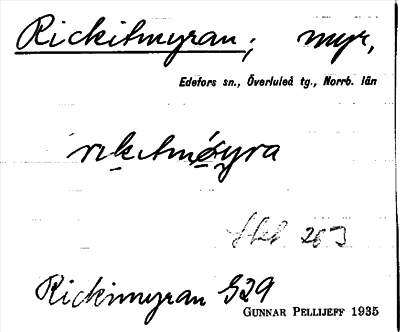 Rickitmyran; myr,
Edefors sn., Överluleå tg., Norrb. län
rikitmóyra
263
Rickimyran S29
GUNNAR PELLIJEFF 1935